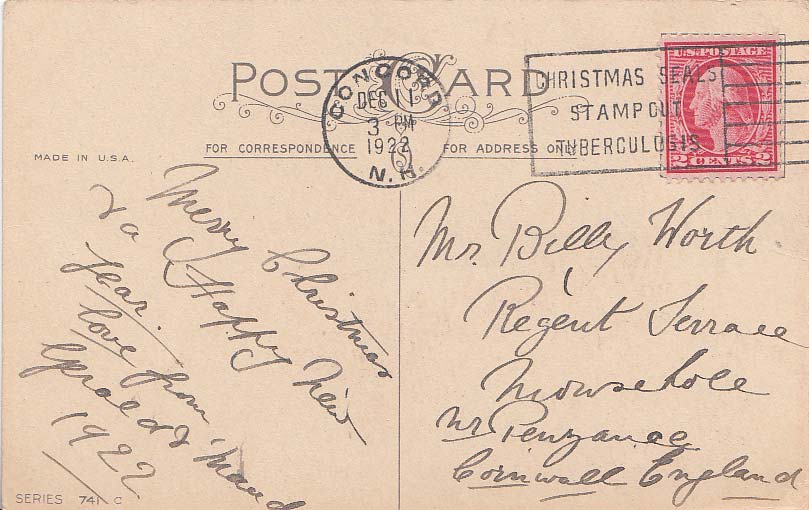 POST CARD
CONCORD
DEC 11
3 PM
1922
N.H.
CHRISTMAS SEALS
STAMP OUT
TUBERCULOSIS
U.S. POSTAGE
2 CENTS 2
FOR CORRESPONDENCE
FOR ADDRESS ONLY
MADE IN U.S.A.
Merry Christmas
& a Happy New
Year.
love from
& Maud
1922
Mr. Billy Worth
1 Regent Terrace
Mousehole
nr Penzance
Cornwall England
SERIES 741 C